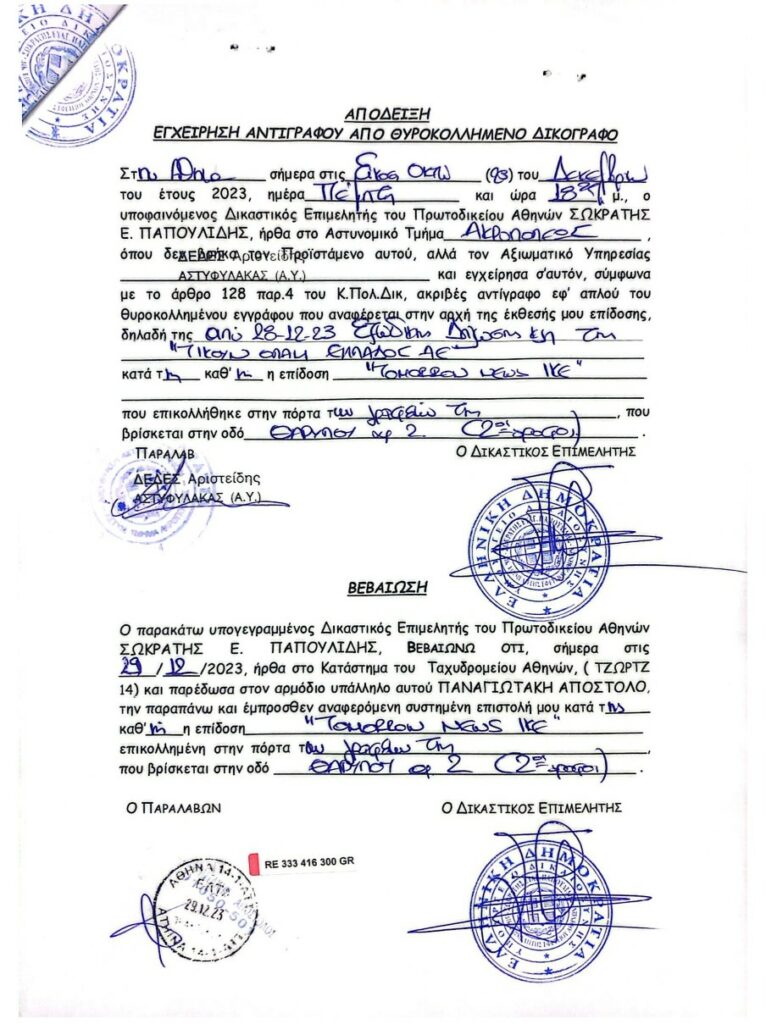 ΑΠΟΔΕΙΞΗ
ΕΓΧΕΙΡΗΣΗ ΑΝΤΙΓΡΑΦΟΥ ΑΠΟ ΘΥΡΟΚΟΛΛΗΜΕΝΟ ΔΙΚΟΓΡΑΦΟ
Στην Αθήνα σήμερα στις Είκοσι Οκτώ (28) του Δεκεμβρίου
του έτους 2023, ημέρα Πέμπτη και ώρα 18 μ., ο
υποφαινόμενος Δικαστικός Επιμελητής του Πρωτοδικείου Αθηνών ΣΩΚΡΑΤΗΣ
Ε. ΠΑΠΟΥΛΙΔΗΣ, ήρθα στο Αστυνομικό Τμήμα ΑΚΡΟΠΟΛΕΩΣ ,
όπου δεν βρήκα τον Προϊστάμενο αυτού, αλλά τον Αξιωματικό Υπηρεσίας
ΔΕΔΕΣ Αριστείδης
ΑΣΤΥΦΥΛΑΚΑΣ (Α.Υ.) και εγχείρησα σ'αυτόν, σύμφωνα
με το άρθρο 128 παρ.4 του Κ.Πολ.Δικ, ακριβές αντίγραφο εφ' απλού του
θυροκολλημένου εγγράφου που αναφέρεται στην αρχή της έκθεσής μου επίδοσης,
δηλαδή της από 28-12-23 Εξώδικης Δήλωσης κλπ της
ΕΛΛΑΔΟΣ ΑΕ"
κατά της καθ' ης η επίδοση "TOMORROW NEWS IKE"
που επικολλήθηκε στην πόρτα των γραφείων της , που
βρίσκεται στην οδό ΘΑΡΥΠΟΥ αρ 2 (2ος όροφος) .
ΠΑΡΑΛΑΒ
Ο ΔΙΚΑΣΤΙΚΟΣ ΕΠΙΜΕΛΗΤΗΣ
ΔΕΔΕΣ Αριστείδης
ΑΣΤΥΦΥΛΑΚΑΣ (Α.Υ.)
ΕΛΛΗΝΙΚΗ ΔΗΜΟΚΡΑΤΙΑ
ΒΕΒΑΙΩΣΗ
Ο παρακάτω υπογεγραμμένος Δικαστικός Επιμελητής του Πρωτοδικείου Αθηνών
ΣΩΚΡΑΤΗΣ Ε. ΠΑΠΟΥΛΙΔΗΣ, ΒΕΒΑΙΩΝΩ ΟΤΙ, σήμερα στις
29 / 12 /2023, ήρθα στο Κατάστημα του Ταχυδρομείου Αθηνών, ( ΤΖΩΡΤΖ
14) και παρέδωσα στον αρμόδιο υπάλληλο αυτού ΠΑΝΑΓΙΩΤΑΚΗ ΑΠΟΣΤΟΛΟ,
την παραπάνω και έμπροσθεν αναφερόμενη συστημένη επιστολή μου κατά της
καθ' ης η επίδοση "TOMORROW NEWS IKE"
επικολλημένη στην πόρτα των γραφείων της ,
που βρίσκεται στην οδό ΘΑΡΥΠΟΥ αρ 2 (2ος όροφος) .
Ο ΠΑΡΑΛΑΒΩΝ
Ο ΔΙΚΑΣΤΙΚΟΣ ΕΠΙΜΕΛΗΤΗΣ
RE 333 416 300 GR
ΑΘΗΝΑ 14-1-ΑΤΗ
ΕΛΤΑ
29.12.23
ΕΛΛΗΝΙΚΗ ΔΗΜΟΚΡΑΤΙΑ